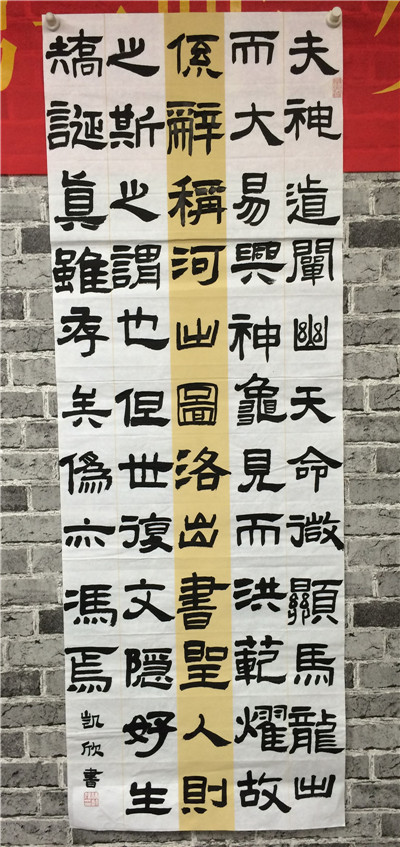 夫神道闡幽天命微顯馬龍出
而大易興神龜見而洪範燿故
係辭稱河出圖洛出書聖人則
之斯之謂也但世復文隱好生
矯誕眞雖存矣僞亦馮焉
凱欣書